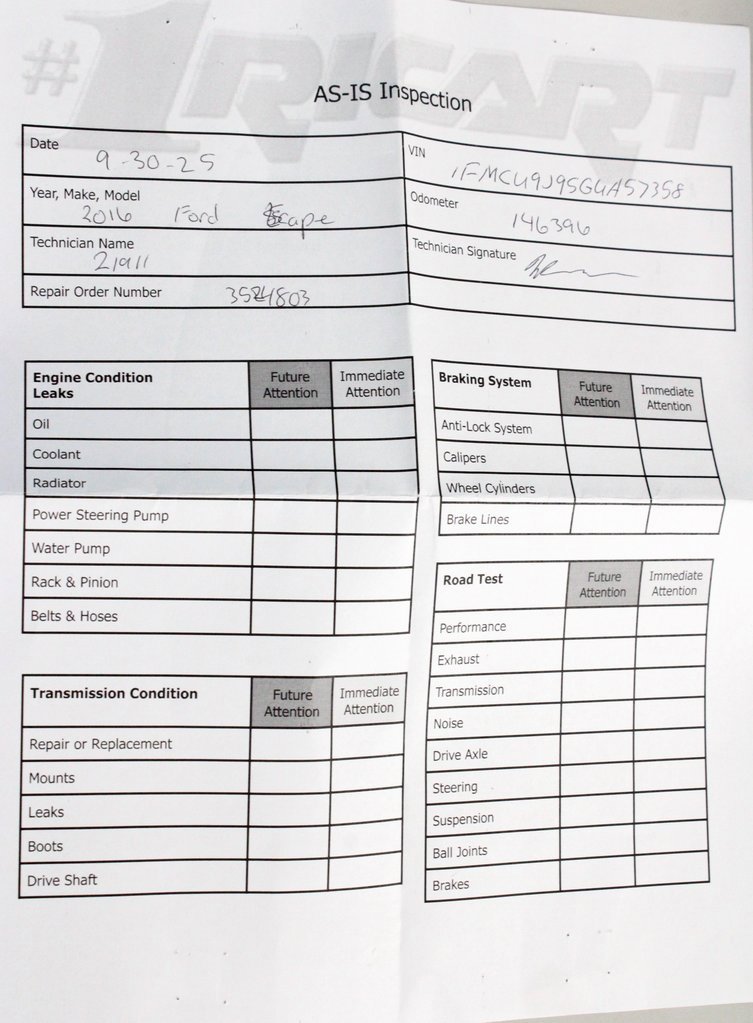 #1 RICART
AS-IS Inspection
Date 9-30-25
VIN 1FMCU9J95GUA57358
Year, Make, Model 2016 Ford Escape
Odometer 146396
Technician Name 21911
Technician Signature
Repair Order Number 3584803
Engine Condition Leaks Future Attention Immediate Attention
Oil
Coolant
Radiator
Power Steering Pump
Water Pump
Rack & Pinion
Belts & Hoses
Transmission Condition Future Attention Immediate Attention
Repair or Replacement
Mounts
Leaks
Boots
Drive Shaft
Braking System Future Attention Immediate Attention
Anti-Lock System
Calipers
Wheel Cylinders
Brake Lines
Road Test Future Attention Immediate Attention
Performance
Exhaust
Transmission
Noise
Drive Axle
Steering
Suspension
Ball Joints
Brakes